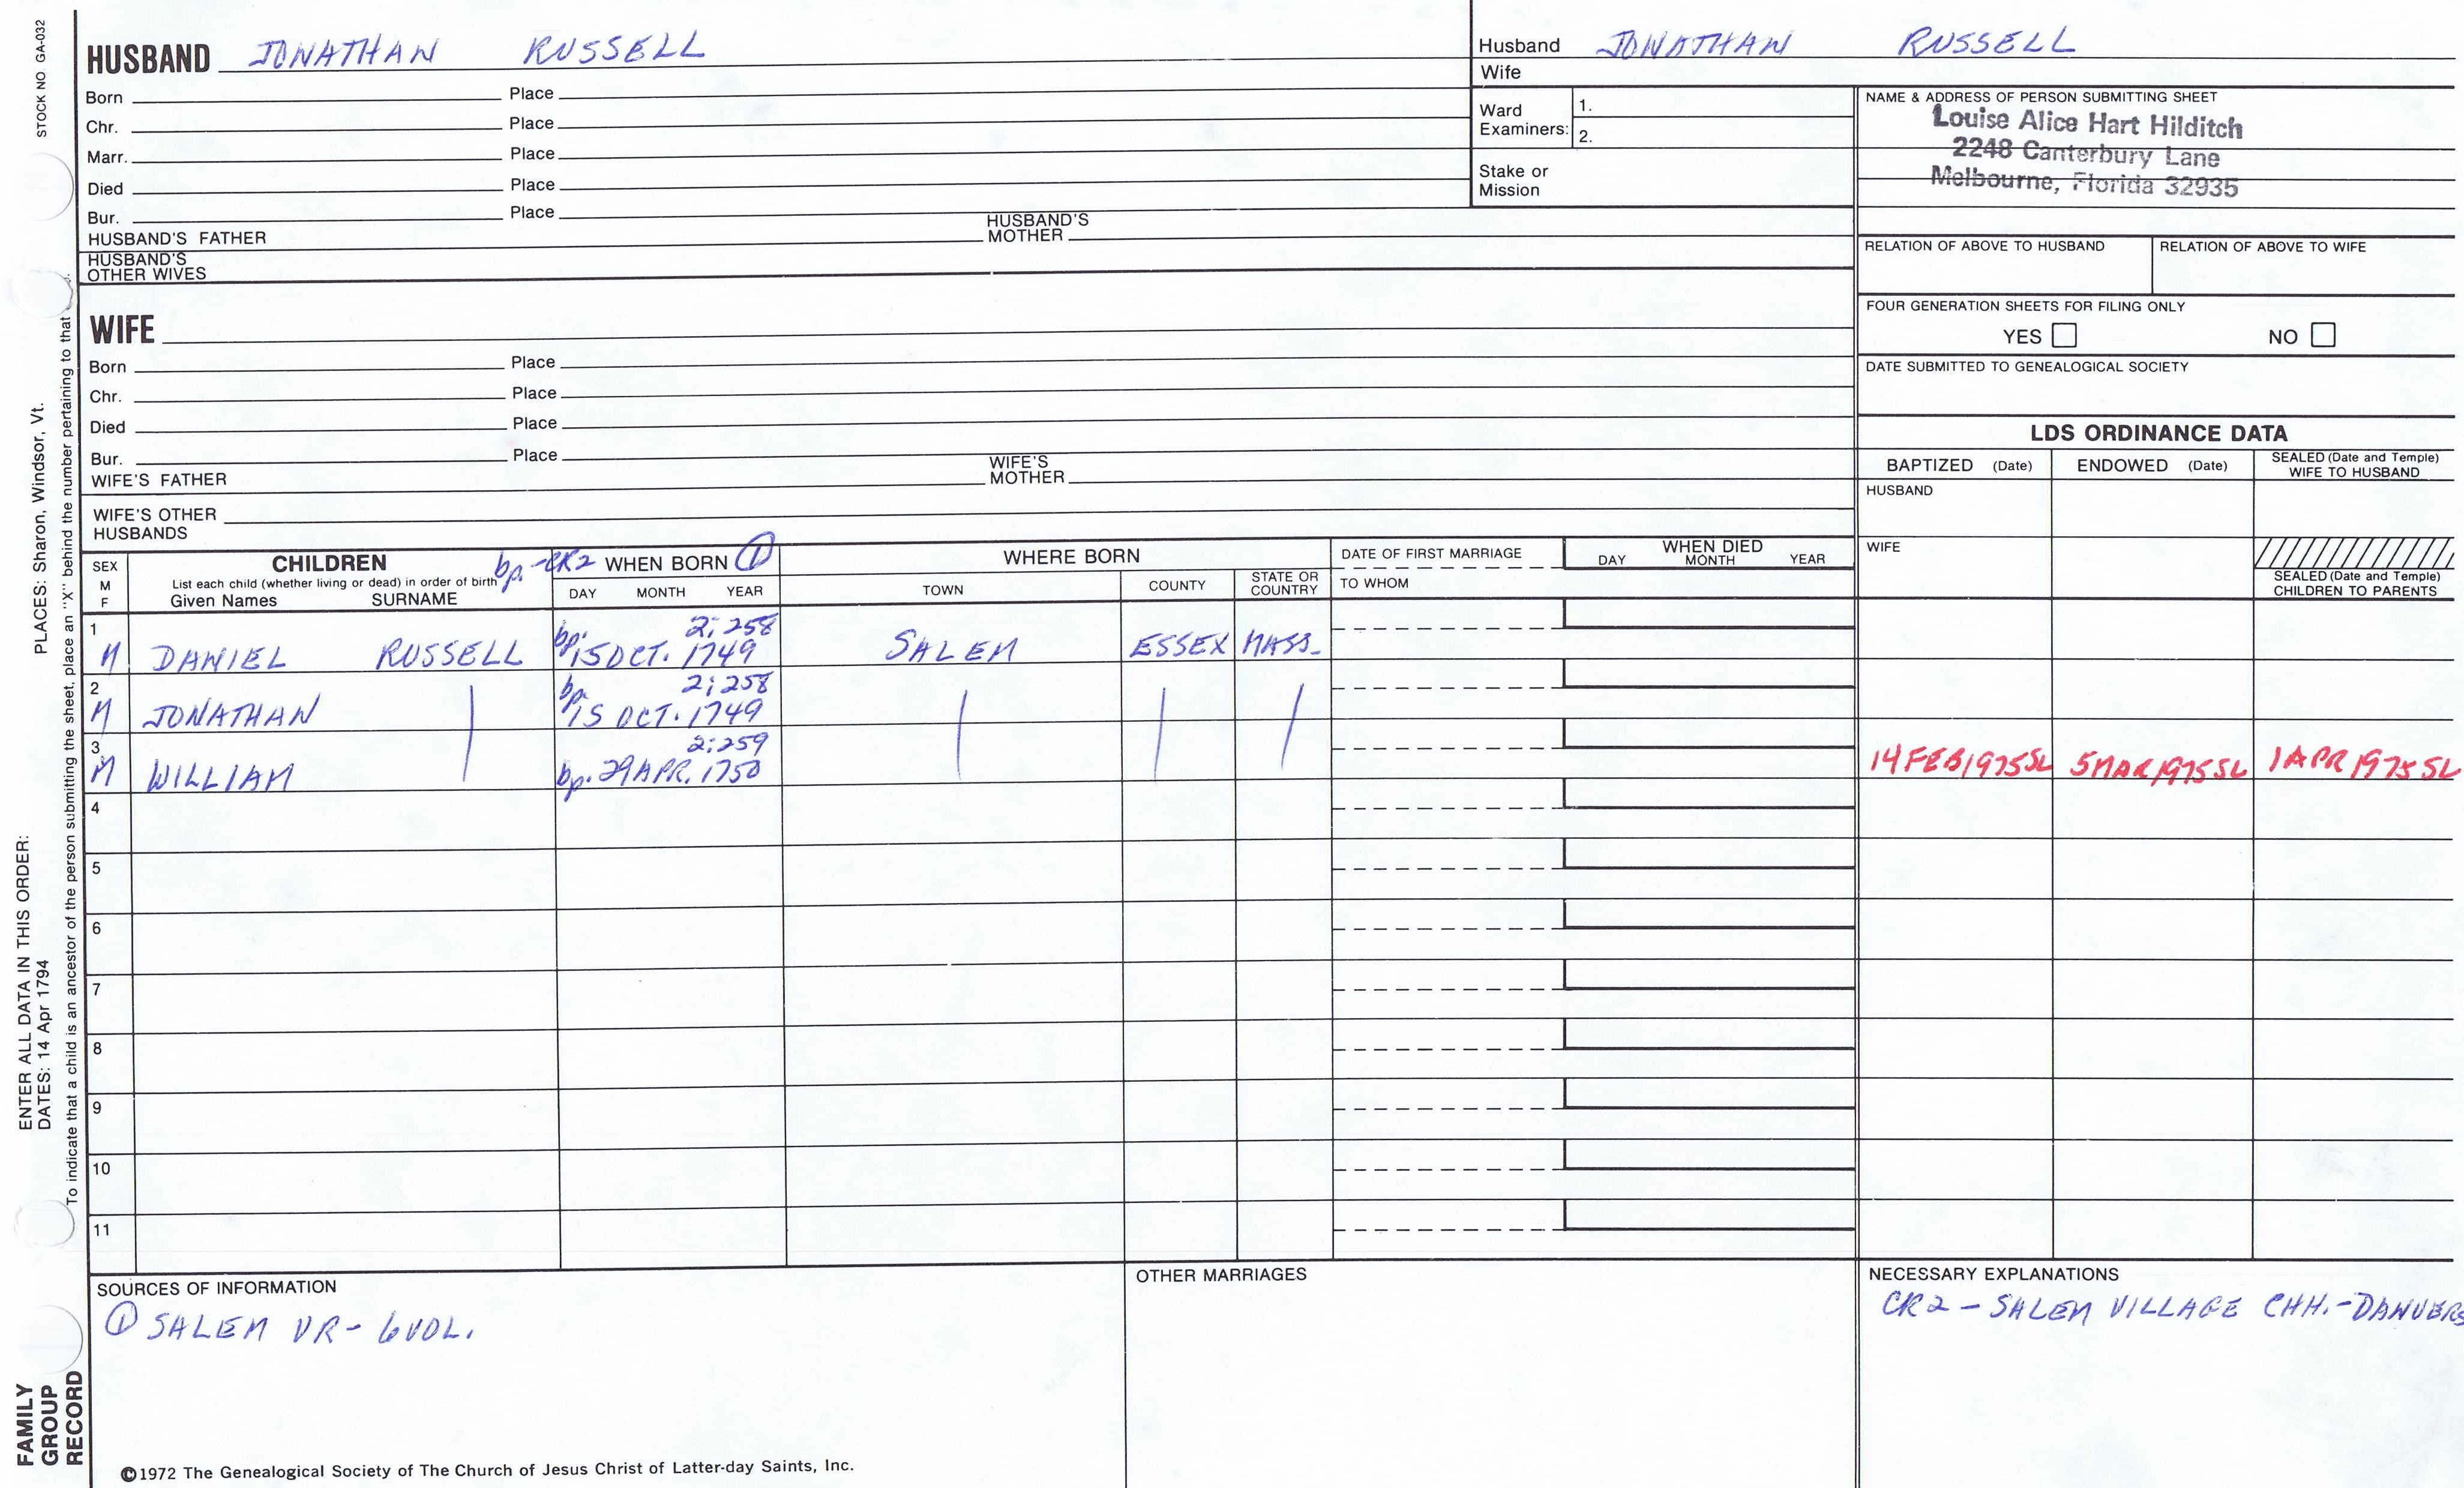 STOCK NO GA-032
HUSBAND JONATHAN RUSSELL
Born Place
Chr. Place
Marr. Place
Died Place
Bur. Place
HUSBAND'S FATHER HUSBAND'S MOTHER
HUSBAND'S OTHER WIVES
Husband JONATHAN RUSSELL
Wife
Ward Examiners: 1.
2.
Stake or Mission
NAME & ADDRESS OF PERSON SUBMITTING SHEET
Louise Alice Hart Hilditch
2248 Canterbury Lane
Melbourne, Florida 32935
RELATION OF ABOVE TO HUSBAND RELATION OF ABOVE TO WIFE
FOUR GENERATION SHEETS FOR FILING ONLY
YES NO
DATE SUBMITTED TO GENEALOGICAL SOCIETY
WIFE
Born Place
Chr. Place
Died Place
Bur. Place
WIFE'S FATHER WIFE'S MOTHER
WIFE'S OTHER HUSBANDS
LDS ORDINANCE DATA
BAPTIZED (Date) ENDOWED (Date) SEALED (Date and Temple) WIFE TO HUSBAND
HUSBAND
WIFE
SEALED (Date and Temple) CHILDREN TO PARENTS
SEX M F
CHILDREN
List each child (whether living or dead) in order of birth
Given Names SURNAME
bp-CR2 WHEN BORN ①
DAY MONTH YEAR
WHERE BORN
TOWN COUNTY STATE OR COUNTRY
DATE OF FIRST MARRIAGE
TO WHOM
WHEN DIED
DAY MONTH YEAR
1 2:258
M DANIEL RUSSELL bp. 15 OCT. 1749 SALEM ESSEX MASS.
2 2:258
M JONATHAN | bp. 15 OCT. 1749 | | |
3 2:259
M WILLIAM bp. 29 APR. 1750 14 FEB 1975 SL 5 MAR 1975 SL 1 APR 1975 SL
4
5
6
7
8
9
10
11
SOURCES OF INFORMATION
① SALEM VR- 6 VOL.
OTHER MARRIAGES
NECESSARY EXPLANATIONS
CR2 - SALEM VILLAGE CHH.-DANVERS
©1972 The Genealogical Society of The Church of Jesus Christ of Latter-day Saints, Inc.
FAMILY
GROUP
RECORD
ENTER ALL DATA IN THIS ORDER:
DATES: 14 Apr 1794
PLACES: Sharon, Windsor, Vt.
To indicate that a child is an ancestor of the person submitting the sheet, place an "X" behind the number pertaining to that